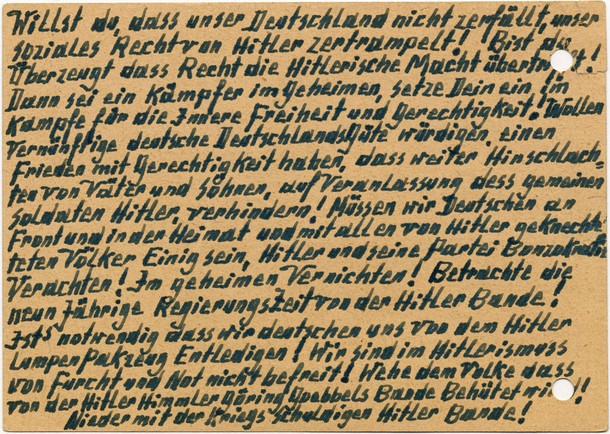 Willst du, dass unser Deutschland nicht zerfällt, unser
soziales Recht von Hitler zertrampelt! Bist du
Überzeugt dass Recht die Hitlerische Macht übertrifft!
Dann sei ein Kämpfer im Geheimen, setze Dein ein, im
Kampfe für die Innere Freiheit und Gerechtigkeit! Wollen
Vernünftige deutsche Deutschlands Güte würdigen, einen
Frieden mit Gerechtigkeit haben, dass weiter Hinschlach=
ten von Väter und Söhnen, auf Veranlassung dess gemeinen
Soldaten Hitler, verhindern! Müssen wir Deutschen an
Front und in der Heimat und mit allen von Hitler geknech
teten Völker Einig sein, Hitler und seine Partei Bonzokratie
Verachten! Im geheimen Vernichten! Betrachte die
neun Jährige Regierungs Zeit von der Hitler Bande!
Ists notwendig dass wir deutschen uns von dem Hitler
Lumpen Pakzeug Entledigen! Wir sind im Hitlerismuss
von Furcht und Not nicht befreit! Wehe dem Volke dass
von der Hitler Himmler Göring Goebbels Bande Behütet wird!
Nieder mit der Kriegs Schuldigen Hitler Bande!